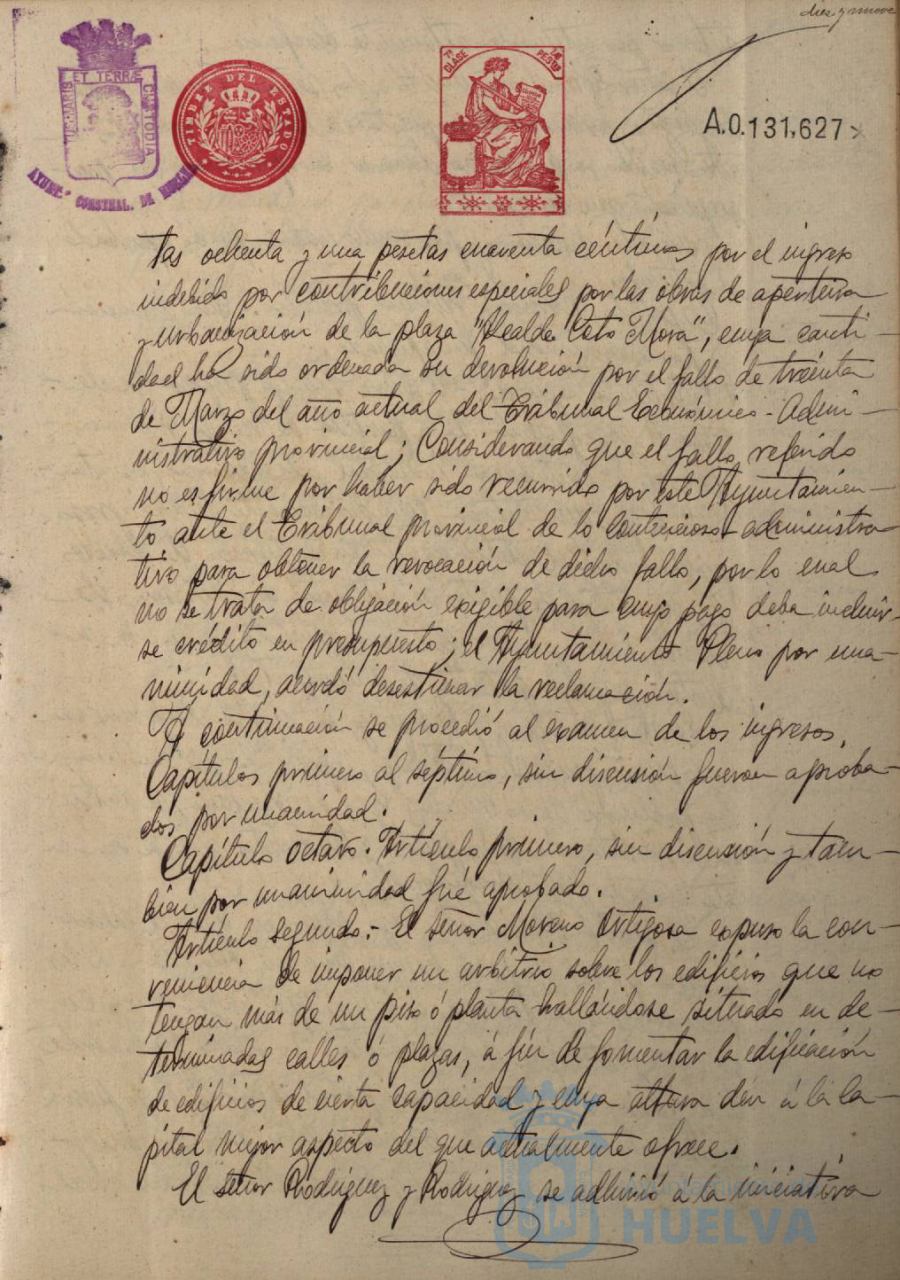 diez y nueve
PORTUS MARIS ET TERRÆ CUSTODIA
AYUNt.º CONSTNAL. DE HUELVA
TIMBRE DEL ESTADO
7ª CLASE
PESTAS
A.0.131,627
tas ochenta y una pesetas cuarenta céntimos por el ingreso
indebido por contribuciones especiales por las obras de apertura
y urbanización de la plaza "Alcalde Coto Mora", cuya canti-
dad ha sido ordenada su devolución por el fallo de treinta
de Marzo del año actual del Tribunal Económico-Admi-
nistrativo provincial; Considerando que el fallo referido
no es firme por haber sido recurrido por este Ayuntamien-
to ante el Tribunal provincial de lo contencioso-administra-
tivo para obtener la revocación de dicho fallo, por lo cual
no se trata de obligación exigible para cuyo pago deba incluir-
se crédito en presupuesto; el Ayuntamiento Pleno por una-
nimidad, acordó desestimar la reclamación.
A continuación se procedió al examen de los ingresos.
Capítulos primero al séptimo, sin discusión fueron aproba-
dos por unanimidad.
Capítulo octavo. Artículo primero, sin discusión y tam-
bién por unanimidad fué aprobado.
Artículo segundo.- El señor Moreno Ortigosa expuso la con-
veniencia de imponer un arbitrio sobre los edificios que no
tengan más de un piso ó planta hallándose situado en de-
terminadas calles ó plazas, á fin de fomentar la edificación
de edificios de cierta capacidad y cuya altura den á la ca-
pital mejor aspecto del que actualmente ofrece.
El señor Rodríguez y Rodríguez se adhirió á la iniciativa
HUELVA